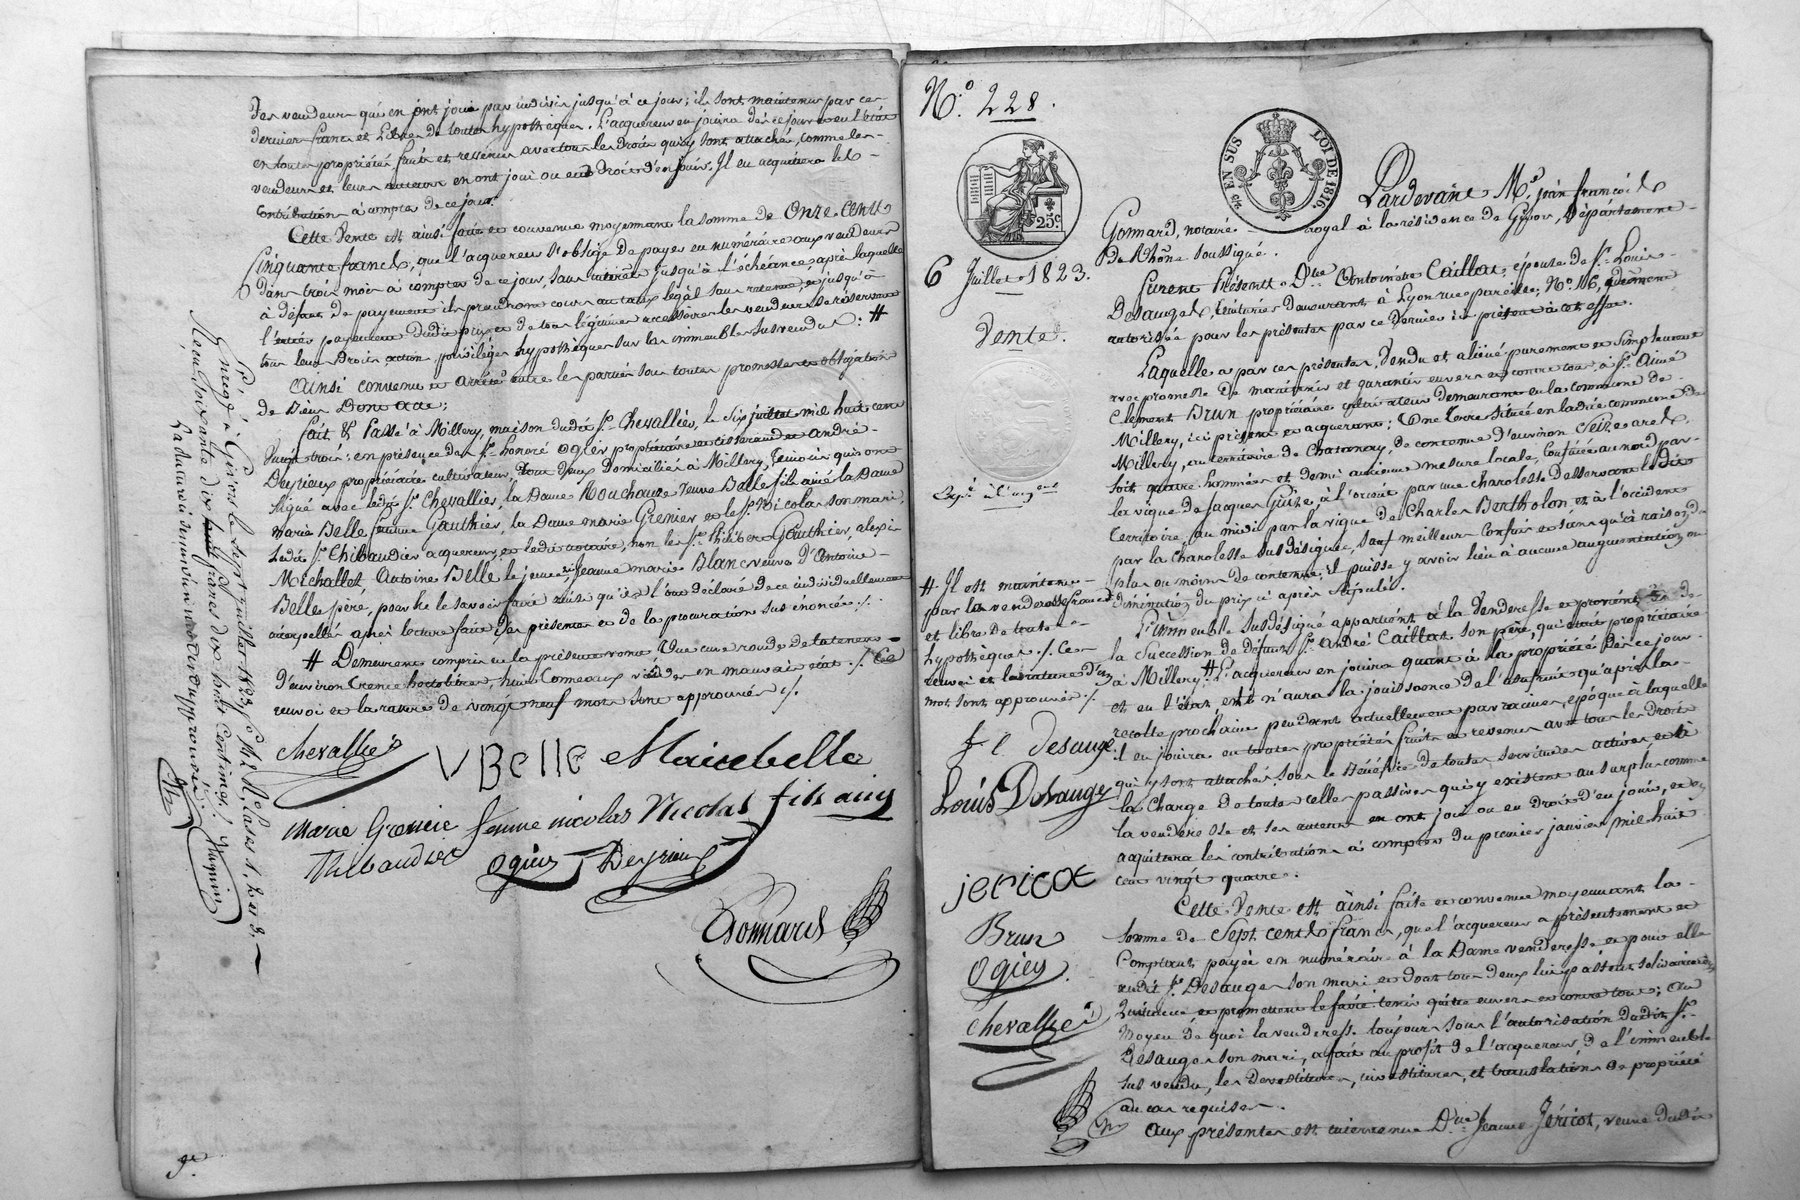 des vendeurs qui en ont joui par indivis jusqu'à ce jour; ils sont maintenus par ces
derniers francs et libres de toutes hypothèques. L'acquereur en jouira dès ce jour et en l'état
en toute propriété fruits et revenus avec tous les droits qui y sont attachés, comme les
vendeurs et leurs auteurs en ont joui ou eu droit d'en jouir. Il en acquittera les
contributions à compter de ce jour.
Cette vente est ainsi faite et convenue moyennant la somme de onze cents
cinquante francs, que l'acquereur s'oblige de payer en numéraire aux vendeurs
dans trois mois à compter de ce jour, sans intérêts jusqu'à l'échéance après laquelle
à défaut de payement ils prendront cours au taux légal sans retenue, et jusqu'à
l'entier payement dudit prix et de tous légitimes accessoires les vendeurs se réservent
tous leurs droits, action, privilèges, hypothèques sur les immeubles susvendus: #
Ainsi convenu et arrêté entre les parties sous toutes promesses et obligations
de biens Dont acte;
fait & Passé à Millery, maison dudit Sr. Chevallier, le six juillet mil huit cent
vingt trois: en présence des Srs. honoré Ogier propriétaire et tisserand et andré
Deyrieux propriétaire cultivateur, tous deux domiciliés à Millery, témoins qui ont
signé avec ledit Sr. Chevallier, la Dame Mouchaux veuve Belle fils ainé la Dame
Marie Belle femme Gauthier, la Dame marie Grenier et le Sr. Nicolas son mari,
ledit Sr. Thibaudier acquereur, et ledit notaire, non les Srs. Philibert Gauthier, alexis
Michallet, Antoine Belle le jeune, Jeanne marie Blanc veuve d'Antoine
Belle père, pour ne le savoir faire ainsi qu'ils l'ont déclaré de ce individuellement
interpellés après lecture faite des présentes et de la procuration sus énoncée ./.
# Demeurent compris en la présente vente une cuve ronde de la teneur
d'environ trente hectolitres, huit tonneaux vides en mauvais état ./. Ce
renvoi et la rature de vingt neuf mots sont approuvés ./.
Chevallier
VBelle Mariebelle
Marie Grenier femme nicolas Nicolas fils ainé
Thibaudier
Ogier Deyrieux
Gonnard
Enregé à Givors le sept juillet 1823, fo. 142 Ro. cases 1, 2 et 3.
Reçu soixante dix francs dix huit centimes.
9e.
No. 228.
25c.
EN SUS
LOI DE 1816
6 Juillet 1823.
Vente.
Expé. à l'acqent
Pardevant Me. jean françois
Gonnard, notaire royal à la résidence de Givors, Département
du Rhône soussigné.
furent Présents Dme. Antoinette Caillat, épouse de Sr. Louis
Desauges, teinturier demeurant à Lyon rue pareille, No. 16, dûment
autorisée pour les présentes par ce dernier ici présent à cet effet.
Laquelle a par ces présentes, vendu et aliéné purement et simplement
avec promesse de maintenir et garantir envers et contre tous, à Sr. Aimé
Clément Brun propriétaire cultivateur demeurant en la commune de
Millery, ici présent et acquerant; Une terre située en ladite commune de
Millery, au territoire de Chatanay, de contenue d'environ seize ares,
soit quatre hommées et demi ancienne mesure locale, confinée au nord par
la vigne de Jacques Guise, à l'orient par une charolesse desservant ledit
territoire, au midi par la vigne de Charles Bertholon et à l'occident
par la charolesse susdésignée, sauf meilleurs confins et sans qu'à raison du
plus ou moins de contenue, il puisse y avoir lieu à aucune augmentation ou
diminution du prix ci après stipulé.
L'immeuble susdésigné appartient à la venderesse et provient de
la succession de défunt Sr. André Caillat son père, qui était propriétaire
à Millery. # L'acquereur en jouira quant à la propriété dès ce jour
et en l'état, et n'aura la jouissance de l'usufruit qu'après la
recolte prochaine pendant actuellement par racines, époque à laquelle
il en jouira en toute propriété fruits et revenus avec tous les droits
qui y sont attachés sous le bénéfice de toutes servitudes actives et à
la charge de toutes celles passives qui y existent au surplus comme
la venderesse et ses auteurs en ont joui ou eu droit d'en jouir, et en
acquittera les contributions à compter du premier janvier mil huit
cent vingt quatre.
Cette vente est ainsi faite et convenue moyennant la
somme de Sept cents francs, que l'acquereur a présentement et
comptant payée en numéraire à la Dame venderesse et pour elle
audit Sr. Desauges son mari et dont tous deux lui passent solidairement
quittance et promettent le faire tenir quitte envers et contre tous; au
moyen de quoi la venderesse toujours sous l'autorisation dudit Sr.
Desauges son mari, a fait au profit de l'acquereur de l'immeuble
sus vendu, les devestitures, investitures, et translations de propriété
au cas requises.
Aux présentes est intervenue Dme. Jeanne Jéricot, veuve dudit
# Il est maintenu
par la venderesse franc
et libre de toutes
hypothèques ./. Ce
renvoi et la rature d'un
mot sont approuvés ./.
f e desauge
Louis Desauge
jericot
Brun
Ogier
Chevallier